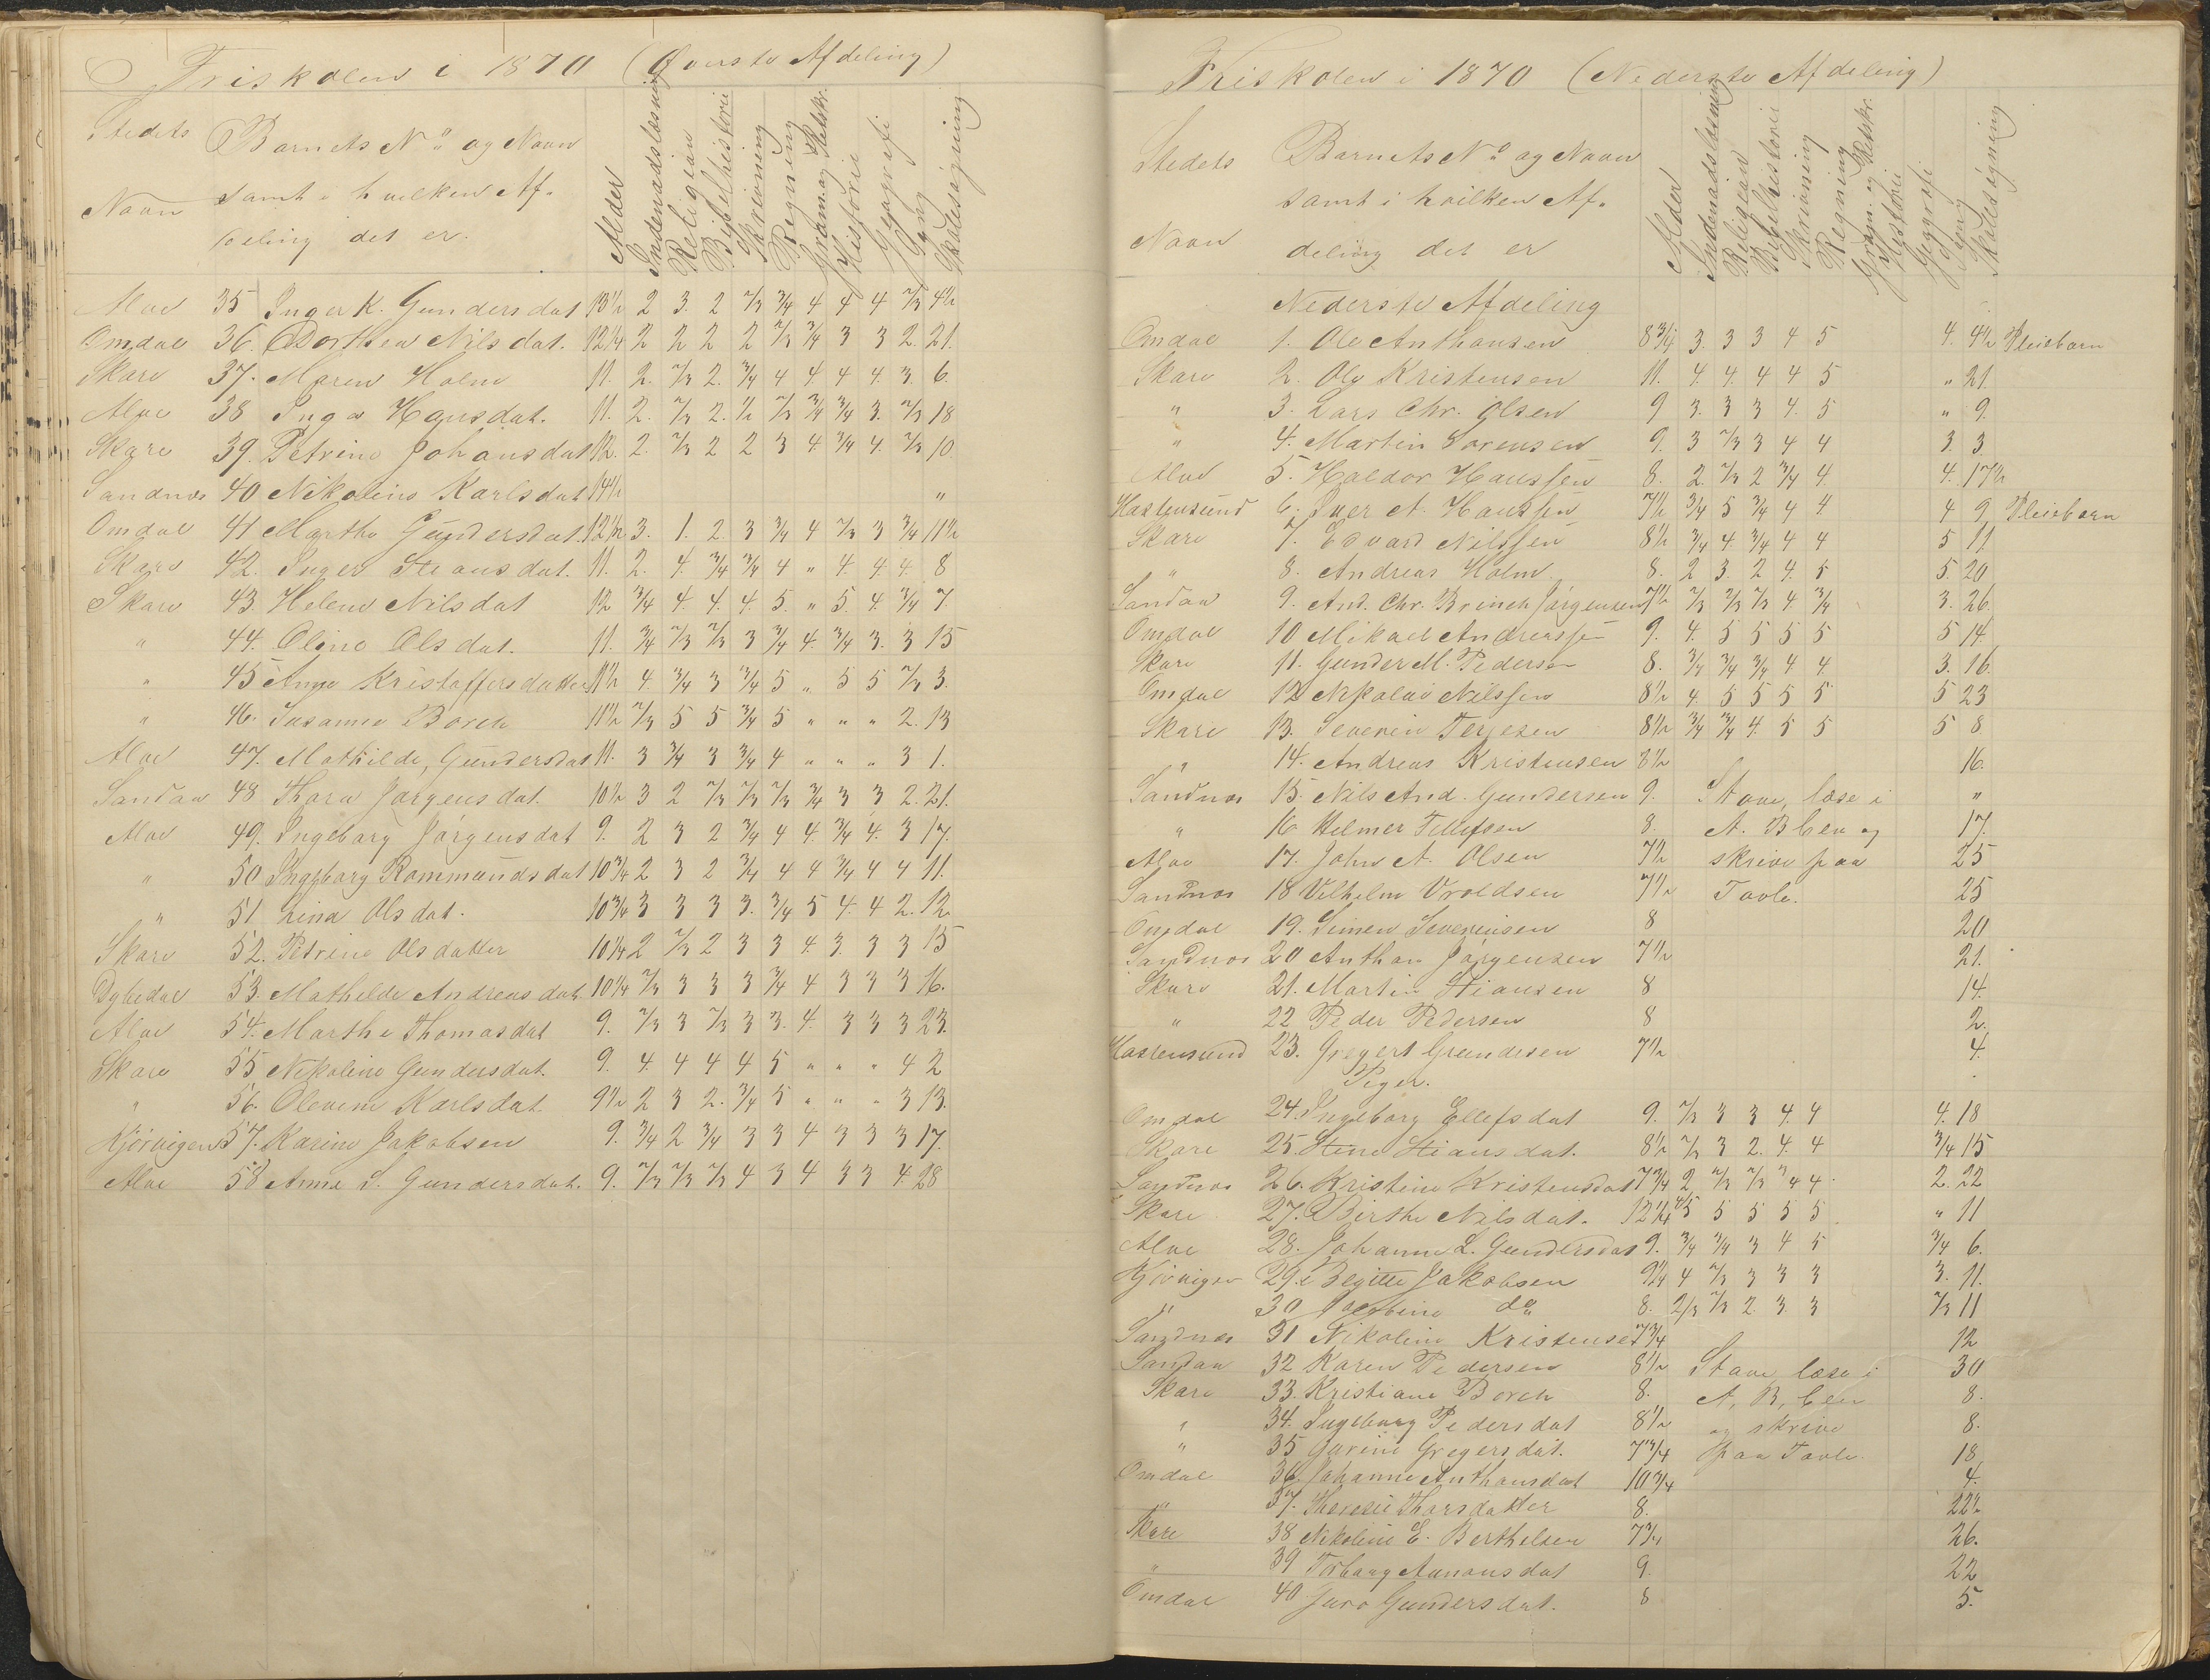 Friskolen i 1870 (Øverste Afdeling)
Stedets Navn
Barnets No og Navn
samt i hvilken Af-
deling det er.
Alder Indenadslæsning Religion Bibelhistorie Skrivning Regning Gram. og Retskr. Historie Geografi Sang Skolesøgning
Alve 35 Inger K. Gundersdat 13½ 2 3. 2 2/3 3/4 4 4 4 2/3 4½
Omdal 36. Dorthea Nilsdat. 12¼ 2 2 2 2 2/3 3/4 3 3 2. 21.
Skare 37. Maren Holm 11. 2. 2/3 2. 3/4 4 4 4 4. 3. 6.
Alve 38 Inga Hansdat. 11. 2. 2/3 2. ½ 2/3 3/4 3/4 3. 2/3 18
Skare 39. Petrine Johansdat 12. 2. 2/3 2 2 3 4. 3/4 4. 2/3 10.
Sandnes 40 Nikoline Karlsdat 14½ "
Omdal 41 Marthe Gundersdat. 12½ 3. 1. 2. 3 3/4 4 2/3 3 3/4 11½
Skare 42. Inger Stiansdat. 11. 2. 4. 3/4 3/4 4 " 4. 4. 4. 8
Skare 43. Helene Nilsdat 12 3/4 4. 4. 4. 5. " 5. 4. 3/4 7.
" 44. Oline Olsdat. 11. 3/4 2/3 2/3 3 3/4 4. 3/4 3. 3 15
" 45 Anne Kristoffersdatter 11½ 4. 3/4 3 3/4 5 " 5 5 2/3 3.
" 46. Susanne Borch 11½ 2/3 5 5 3/4 5 " " " 2. 13
Alve 47. Mathilde, Gundersdat 11. 3 3/4 3 3/4 4 " " " 3 1.
Sandaa 48 Thora Jørgensdat. 10½ 3 2 2/3 2/3 2/3 3/4 3 3 2. 21.
Alve 49. Ingeborg Jørgensdat 9. 2 3 2 3/4 4 4. 3/4 4. 3 17.
" 50 Ingeborg Rommundsdat 10¾ 2 3 2 3/4 4 4 3/4 4 4 11.
" 51. Lina Olsdat. 10¾ 3 3 3 3. 3/4 5 4. 4 2. 12.
Skare 52. Petrine Olsdatter 10¼ 2 2/3 2 3 3 4. 3. 3 3 15
Dybedal 53. Mathilde Andreasdat 10¼ 2/3 3 3 3 3/4 4 3 3 3 16.
Alve 54. Marthe Thomasdat 9. 2/3 3 2/3 3 3. 4. 3 3 3 23.
Skare 55 Nikoline Gundersdat. 9. 4. 4 4 4 5 " " " 4 2
" 56. Olevine Karlsdat. 9½ 2 3 2. 3/4 5 " " " 3 13.
Kjørvigen 57. Karine Jakobsen 9. 3/4 2 3/4 3 3 4 3 3 3 17.
Alve 58 Anne S. Gundersdat. 9. 2/3 2/3 2/3 4 3 4 3 3 4 28
Friskolen i 1870 (Nederste Afdeling)
Stedets Navn
Barnets No og Navn
samt i hvilken Af-
deling det er
Alder Indenadslæsning Religion Bibelhistorie Skrivning Regning Gram. og Retskr. Historie Geografi Sang Skolesøgning
Nederste Afdeling
Omdal 1. Ole Anthonsen 8¾ 3. 3 3 4 5 4. 4½ Pleiebarn
Skare 2. Ole Kristensen 11. 4. 4. 4 4 5 " 21.
" 3. Lars Chr. Olsen 9 3. 3 3 4. 5 " 9.
" 4. Martin Sørensen 9. 3 2/3 3 4 4 3. 3.
Alve 5. Haldor Hanssen 8. 2. 2/3 2 3/4 4. 4. 17½
Hastensund 6. Iver A. Hanssen 7½ 3/4 5 3/4 4 4 4 9 Pleiebarn
Skare 7. Edvard Nilssen 8½ 3/4 4. 3/4 4 4 5 11.
" 8. Andreas Holm. 8. 2 3. 2 4. 5 5. 20
Sandaa 9. And. Chr. Brinch Jørgensen 7½ 2/3 2/3 2/3 4. 3/4 3. 26.
Omdal 10 Mikael Andreassen 9. 4. 5 5 5 5 5 14.
Skare 11. Gunder M. Pedersen 8. 3/4 3/4 3/4 4 4. 3. 16.
Omdal 12 Nikolai Nilssen 8½ 4. 5 5 5 5 5 23
Skare 13. Severin Terjesen 8½ 3/4 3/4 4. 5 5 5 8.
" 14. Andreas Kristensen 8½ 16.
Sandnes 15. Nils And. Gundersen 9. Stave, læse i "
" 16 Hilmer Tellefsen 8. A. B Cen og 17.
Alve 17. John A. Olsen 7½ skrive paa 25
Sandnes 18 Vilhelm Vroldsen 7½ Tavle. 25
Omdal 19. Simen Severinsen 8 20
Sandnes 20 Anthon Jørgensen 7½ 21.
Skare 21. Martin Stiansen 8 14.
" 22 Peder Pedersen 8 2.
Hastensund 23. Gregert Gundersen 7½ 4.
Piger.
Omdal 24. Ingeborg Ellefsdat 9. 2/3 3 3 4. 4 4. 18
Skare 25. Stine Stiansdat. 8½ 2/3 3 2. 4. 4 3/4 15
Sandnes 26. Kristine Kristensdat 7¾ 2 2/3 2/3 3/4 4. 2. 22
Skare 27. Birthe Nilsdat. 12¼ 4/5 5 5 5 5 " 11
Alve 28. Johanne L. Gundersdat 9. 3/4 3/4 3 4 5 3/4 6.
Kjørvigen 29. Begitte Jakobsen 9¼ 4 2/3 3 3 3 3. 11.
" 30 Jacobine do 8. 2/3 2/3 2. 3. 3 2/3 11
Sandnes 31 Nikoline Kristensen 7¾ 12
Sandaa 32 Karen Pedersen 8½ Stave, læse i 30
Skare 33. Kristiane Borch 8. A, B, Cen 8.
" 34. Ingeborg Pedersdat 8½ og skrive 8.
" 35 Gurine Gregersdat. 7¾ paa Tavle. 18
Omdal 36 Johanne Anthonsdat 10¾ 4.
" 37. Therese Thorsdatter 8. 22½
Skare 38 Nikoline E. Berthelsen 7¾ 26.
" 39 Torborg Aanonsdat 9. 22
Omdal 40 Juro Gundersdat. 8 5.